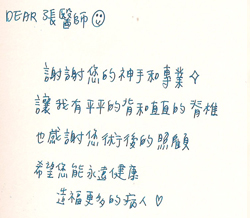 DEAR 張醫師☺
謝謝您的神手和專業✧
讓我有平平的背和直直的脊椎
也感謝您術後的照顧
希望您能永遠健康
造福更多的病人♡